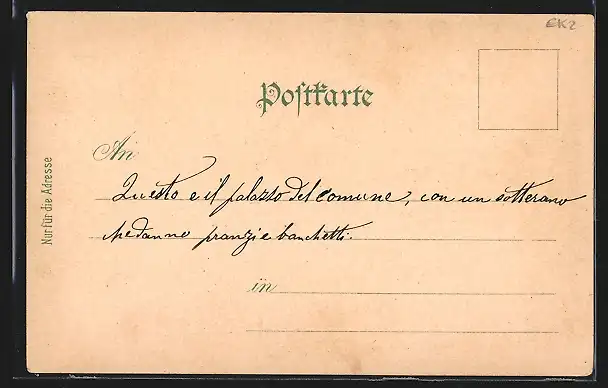 EK2
Postkarte
An
Nur für die Adresse
Questo e il palazzo del comune, con un sotterano
che danno pranzi e banchetti.
in